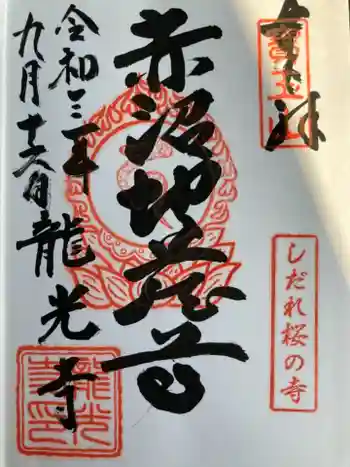 奉拝
しだれ桜の寺
赤沼地蔵尊
令和三年
九月十六日 龍光寺